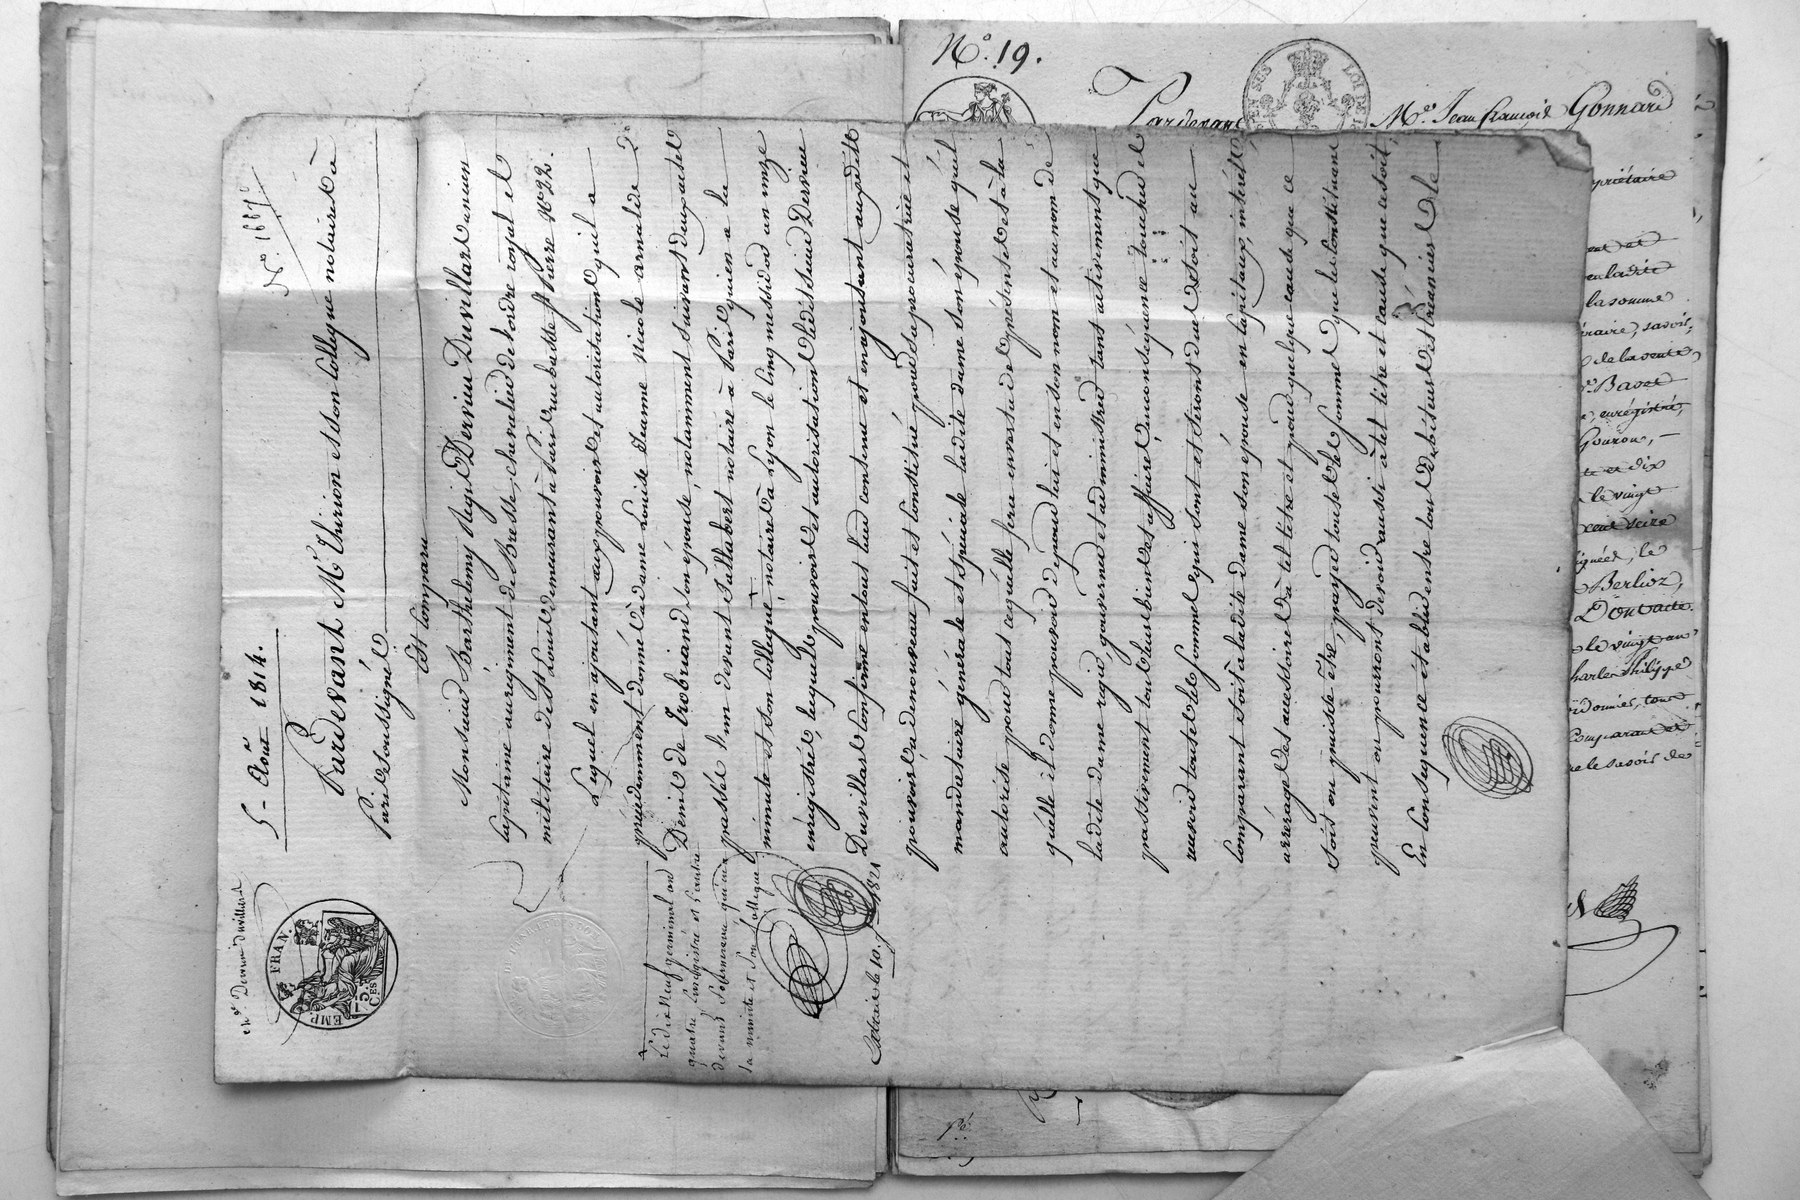 5 - Aout 1814.
N.° 1667
Pardevant M.e Thirion et son Collegue notaires à
Paris soussignés
Est Comparu
Monsieur Barthelemy Regis Dervieu Duvillars ancien
Capitaine au regiment de Bresse, chevalier de l'ordre royal et
militaire de St Louis demeurant à Paris rue basse St Pierre N.° 22.
Lequel en ajoutant aux pouvoirs et autorisations qu'il a
précédemment donnés à dame Louise Jeanne Nicole arnalde
Denis de Trobriand son épouse, notamment suivant deux actes
passés l'un devant Tallabert notaire à Paris qui en a la
minute et son Collegue, notaires à Lyon le cinq messidor an onze
enregistré, lesquels pouvoirs et autorisations ledit sieur Dervieu
Duvillars confirme en tout leur contenu et en ajoutant auxdits
pouvoirs a de nouveau fait et constitué pour sa procuratrice et
mandataire générale et spéciale ladite dame son épouse qu'il
autorise pour tout ce qu'elle fera en vertu des présentes et à la
quelle il donne pouvoir de pour lui et en son nom et au nom de
ladite dame régir, gouverner et administrer tant activement que
passivement tous leurs biens et affaires, en conséquence toucher et
recevoir toutes les sommes qui sont et seront dues soit au
comparant soit à ladite dame son épouse en capitaux, intérêts
arrérages et accessoires à tel titre et pour quelque cause que ce
soit ou puisse être, payer toutes les sommes que les constituans
peuvent ou pourront devoir aussi à tel titre et cause que ce soit,
En Conséquence établir entre tous débiteurs et créanciers de le
en gr. Dervieu duvillars
EMP. FRAN.
75 C.ES
le dix neuf germinal an
quatre Enregistré et l'autre
devant
la minute et son Collegue
Extrait le 10. 1821
N.° 19.
Pardevant
M.e Jean François Gonnard
propriétaire
la somme
savoir,
de la vente,
enregistré,
Gouron, -
te et dix
le vingt
Berlioz,
Dont acte.
le vingt un
Charles Philippe
Comparant et